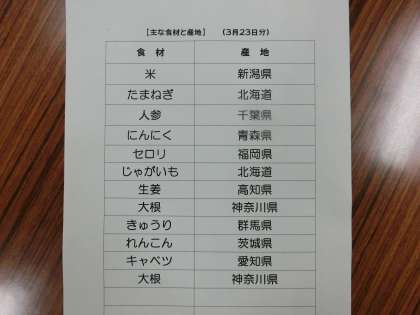 【主な食材と産地】 (3月23日分)
食 材 産 地
米 新潟県
たまねぎ 北海道
人参 千葉県
にんにく 青森県
セロリ 福岡県
じゃがいも 北海道
生姜 高知県
大根 神奈川県
きゅうり 群馬県
れんこん 茨城県
キャベツ 愛知県
大根 神奈川県